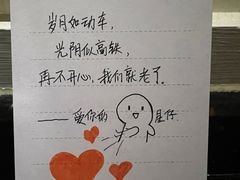 岁月如动车，
光阴似高铁，
再不开心，我们就老了。
——爱你的 星仔